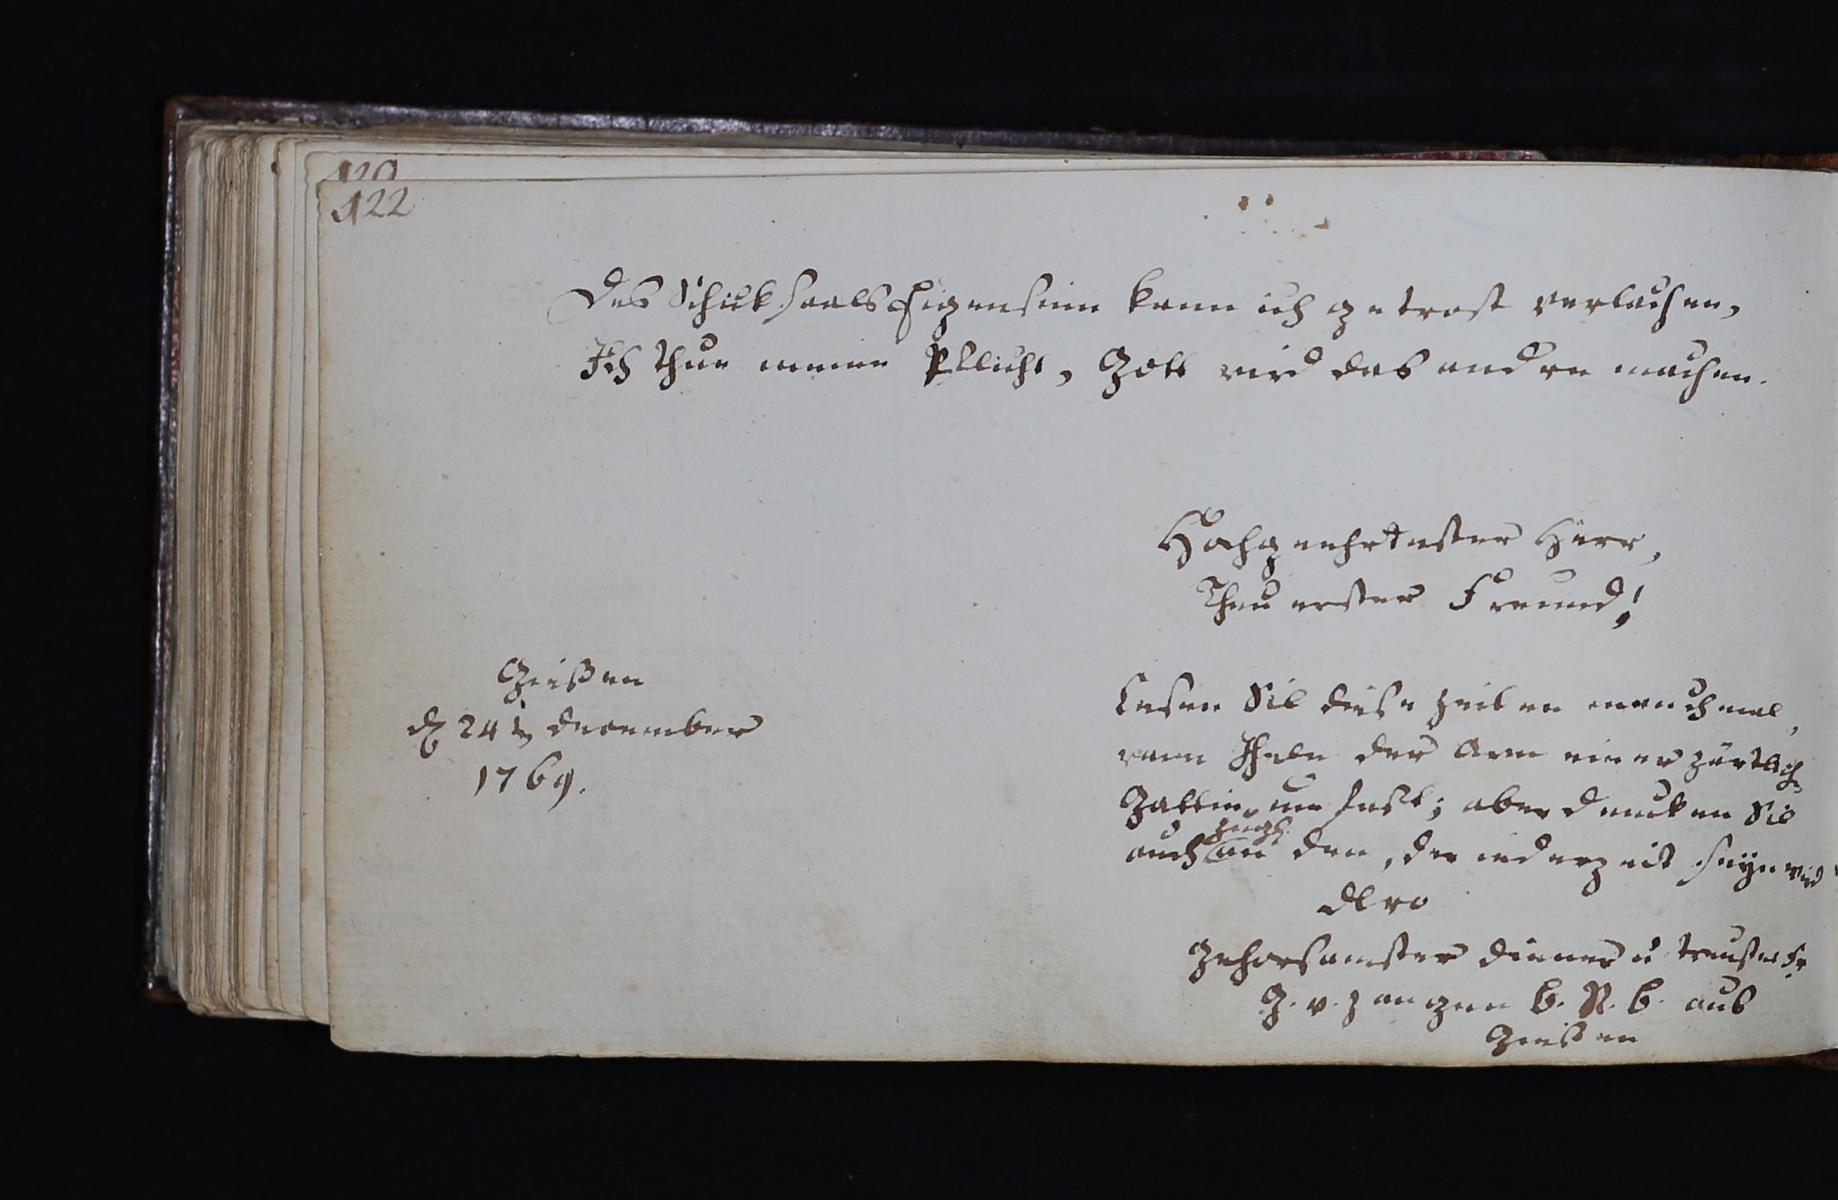 120
122
Des Schicksaals Eigensinn kann ich getrost verlachen,
Ich thue meine Pflicht, Gott wird das andre machen.
Hochgeehrtester Herr,
Theuerster Freund!
Giesen
d. 24 december
1769.
Lesen Sie diese Zeilen manchmal,
wann Ihnen der Arm einer zärtlich
Gattin umfast; aber dencken Sie
auch an den, der iederzeit seyn wird
dero
gehorsamster diener u. treuster Fr
G. v. Zangen b. R. b. aus
Giesen